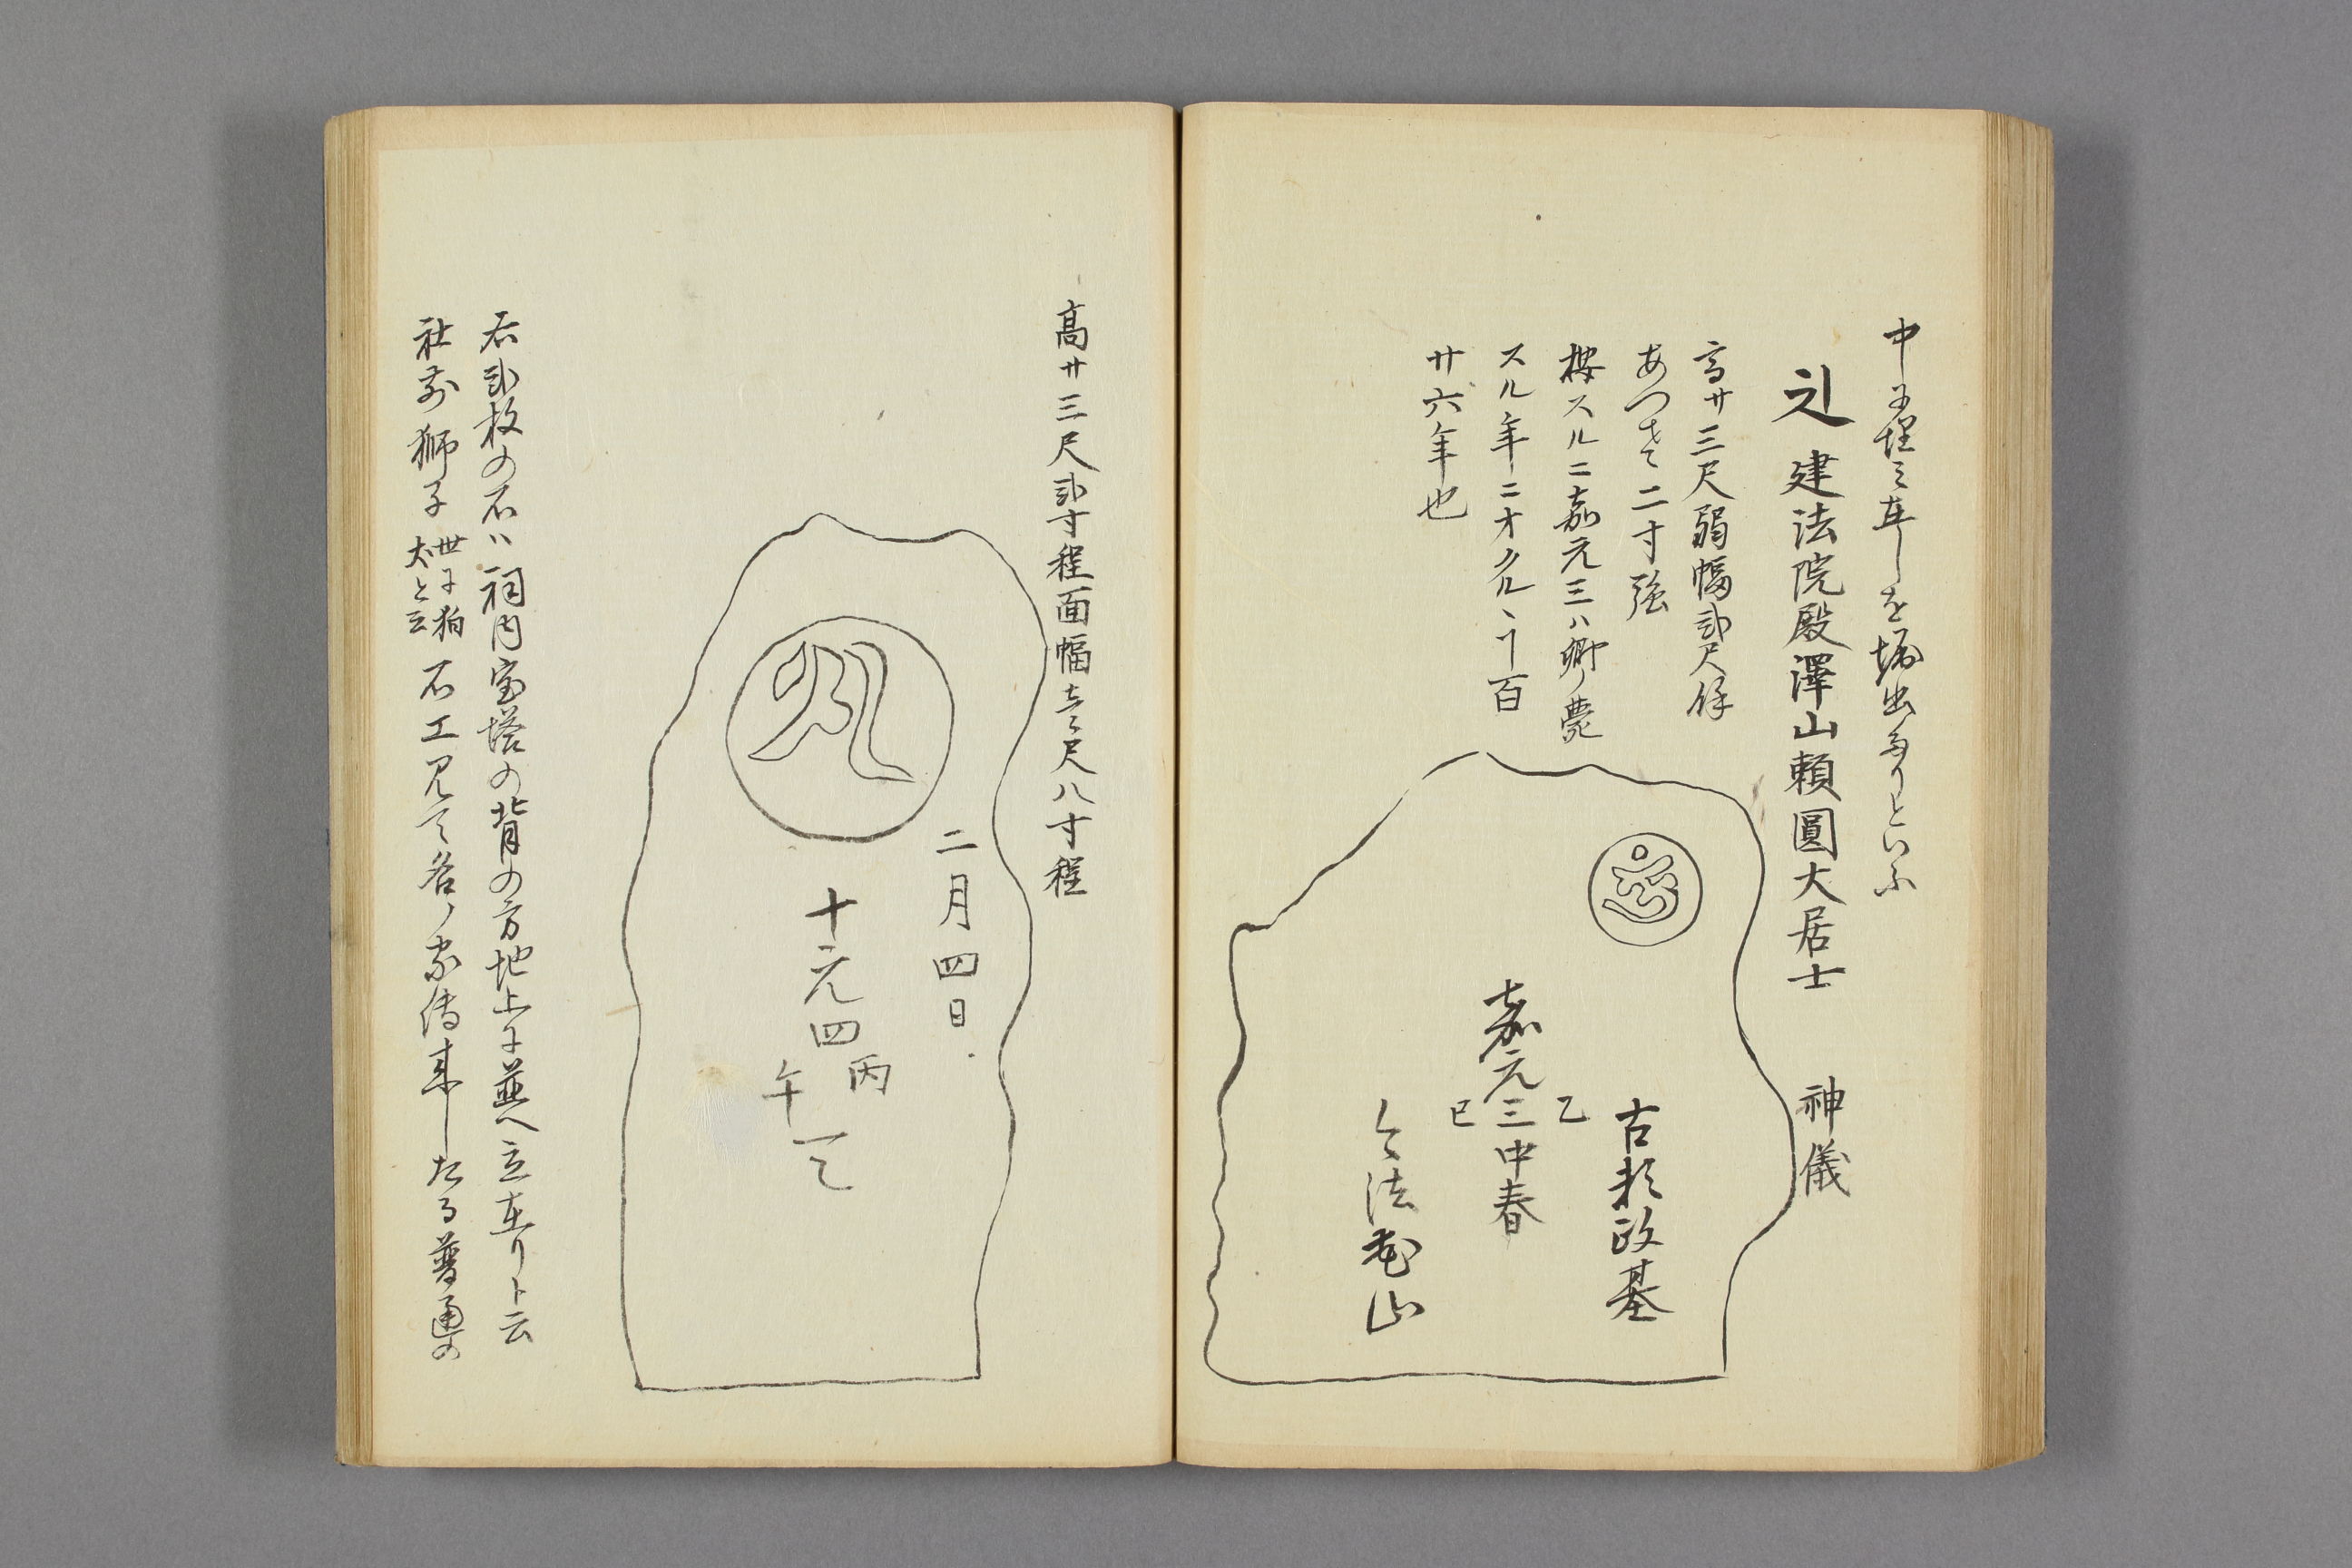 中に埋ミ在しを堀出せりといふ
建法院殿澤山頼圓大居士　神儀
高サ三尺弱幅弐尺餘
あつさ二寸強
按スルニ嘉元三ハ卿ノ薨
スル年ニオクルヽヿ百
廿六年也
古彩政基
乙
嘉元三中春
巳
法花山
高サ三尺弐寸程面幅壱尺八寸程
二月四日
十元四
丙
午
右弐枚の石ハ祠内宝塔の背の方地上に並へ立在リト云
社前獅子世に狛犬と云石工見て各ノ家傳来したる普通の